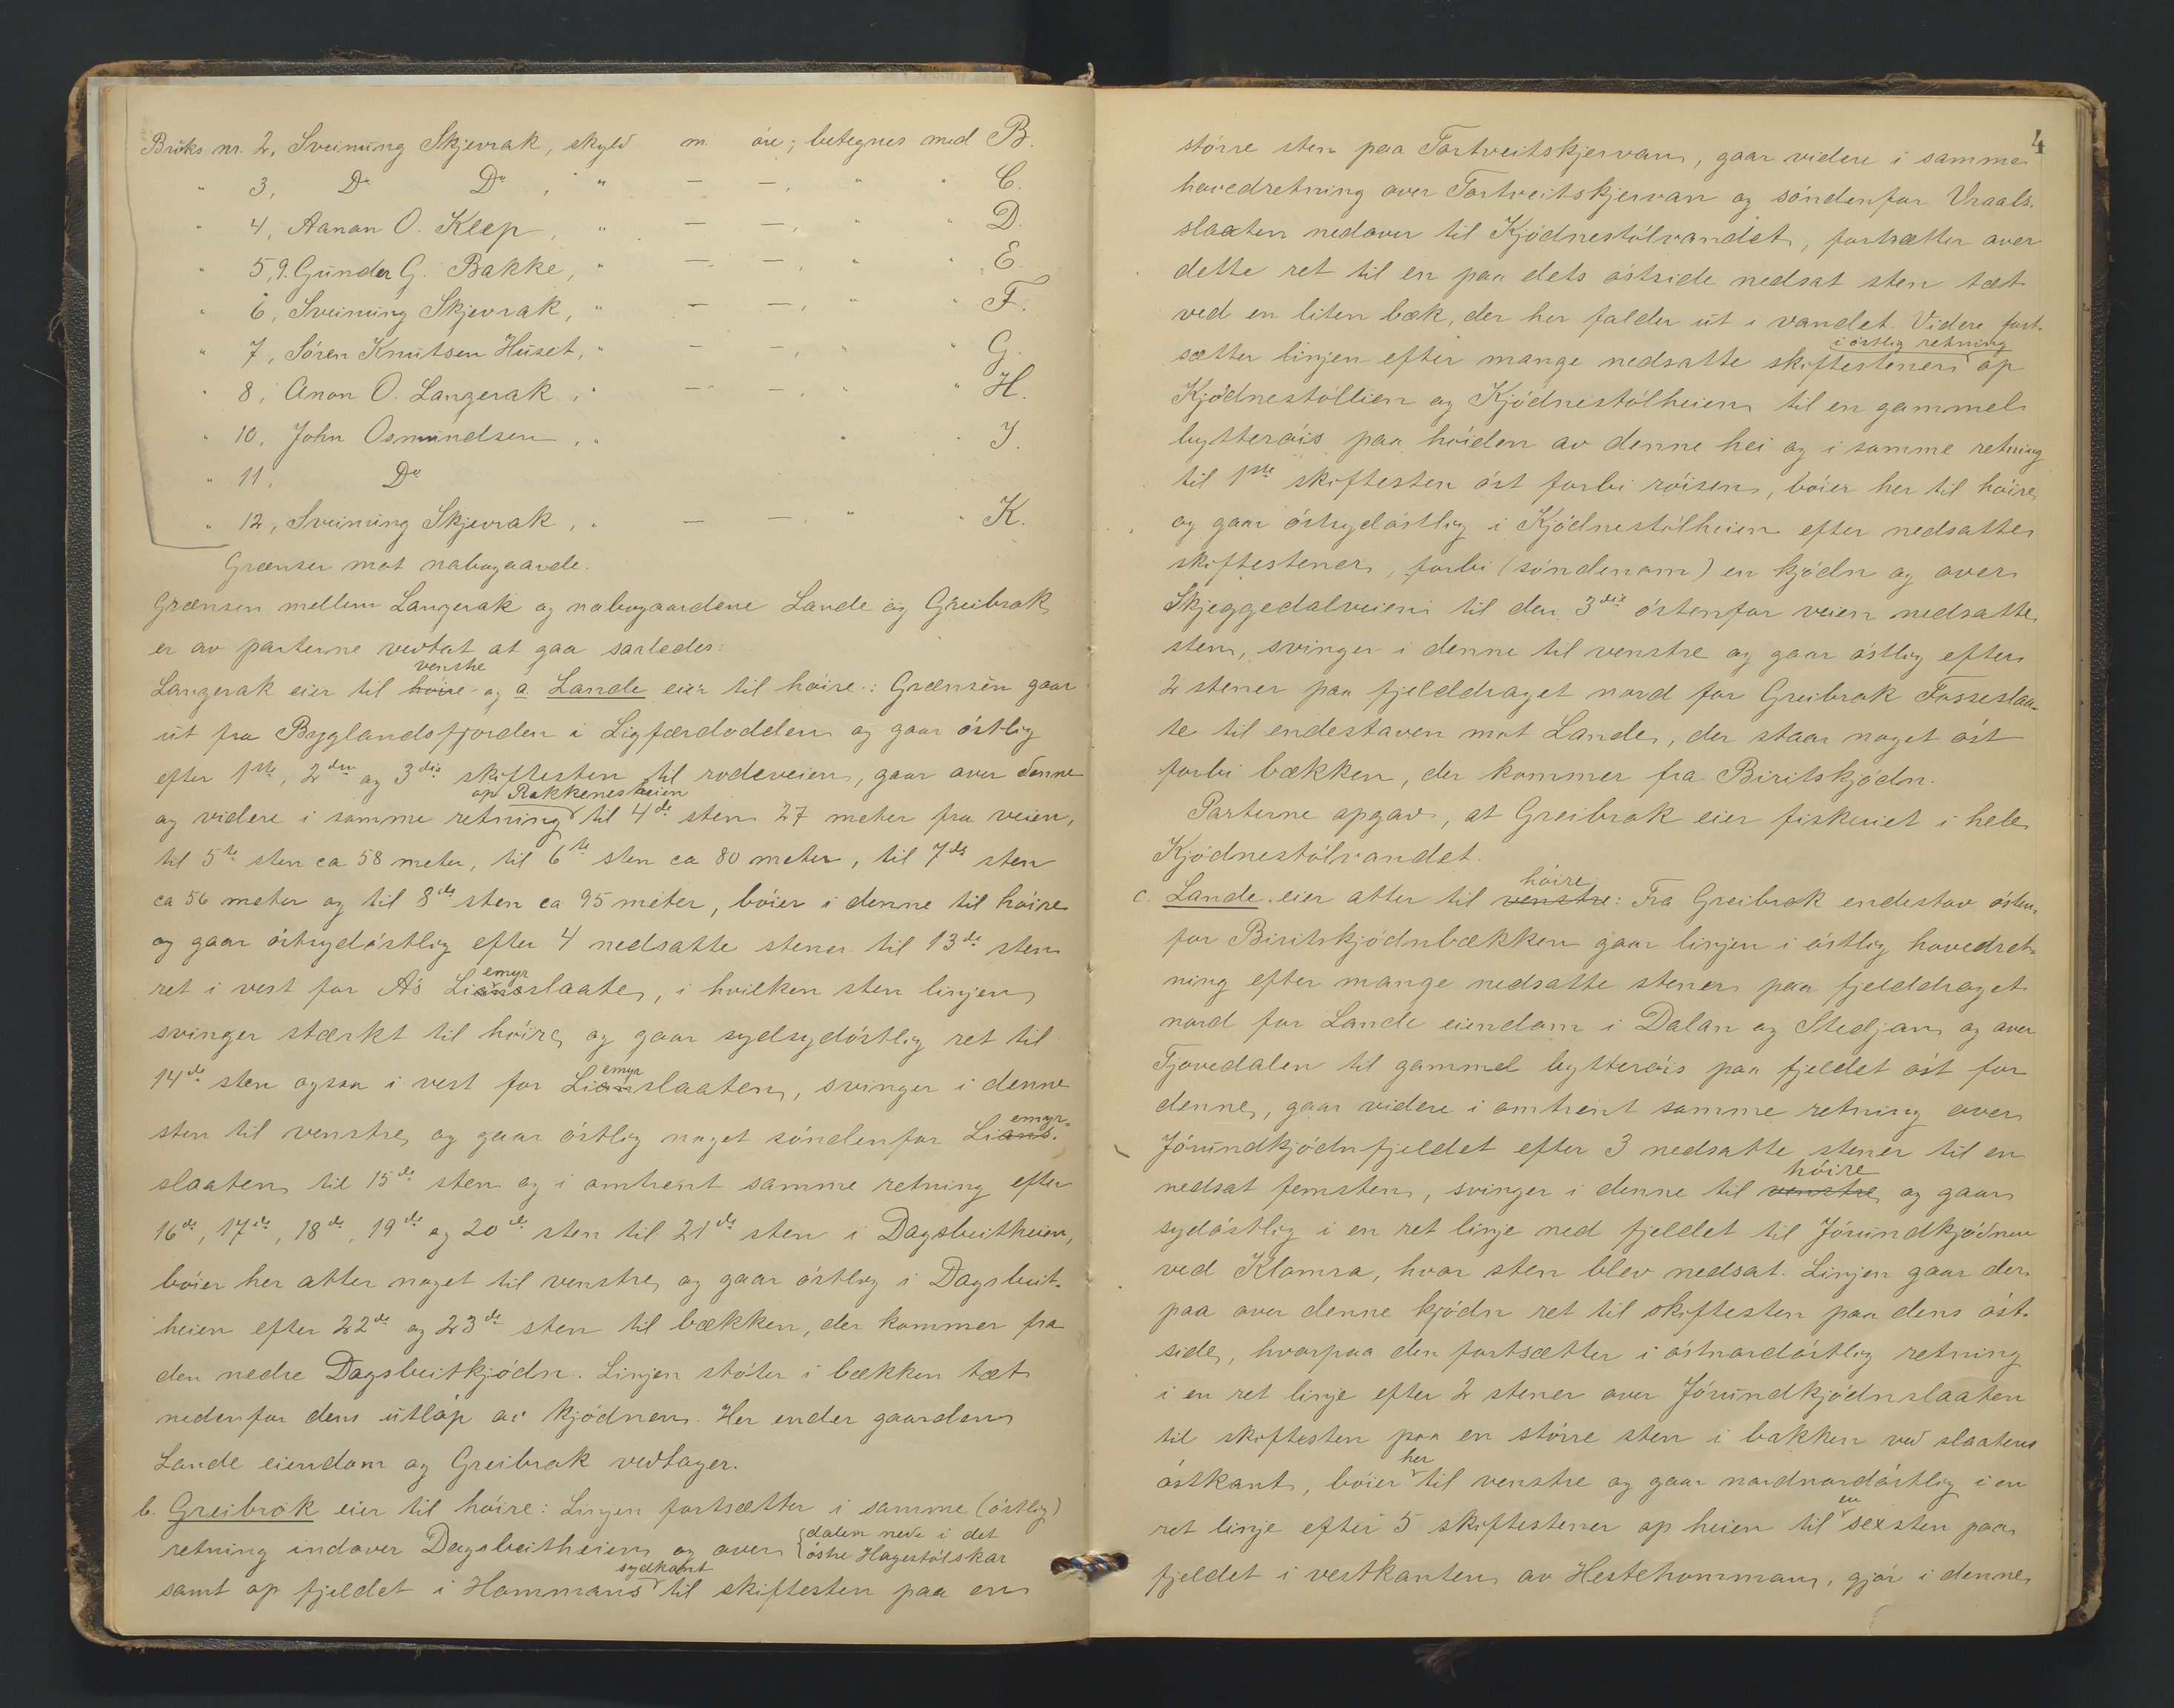 Bruks nr. 2, Sveinung Skjevrak, skyld m. øre; betegnes med B.
" 3, Do Do, " — —, " " C.
" 4, Aanon O. Kleep, " — —, " " D.
" 5,9. Gunder G. Bakke, " — —, " " E.
" 6, Sveinung Skjevrak, " — —, " " F.
" 7, Søren Knutsen Huset, " — —, " " G.
" 8, Anon O. Langerak, " — —, " " H.
" 10, John Osmundsen, " " " J.
" 11, Do
" 12, Sveinung Skjevrak, " — —, " " K.
Grænser mot nabogaarde.
Grænsen mellem Langerak og nabogaardene Lande og Greibrok
er av parterne vedtat at gaa saaledes:
venstre
Langerak eier til høire og a Lande eier til høire: Grænsen gaar
ut fra Byglandsfjorden i Ligfærdodden og gaar østlig
efter 1ste, 2den og 3die skiftesten til rodeveien, gaar over denne
op Rakkenesheien
og videre i samme retning til 4de sten 27 meter fra veien,
til 5te sten ca 58 meter, til 6te sten ca 80 meter, til 7de sten
ca 56 meter og til 8de sten ca 95 meter, bøier i denne til høire
og gaar østsydøstlig efter 4 nedsatte stener til 13de sten
emyr
ret i vest for A's Liansslaate, i hvilken sten linjen
svinger stærkt til høire og gaar sydsydøstlig ret til
emyr
14de sten ogsaa i vest for Lianslaaten, svinger i denne
emyr-
sten til venstre og gaar østlig noget søndenfor Lians-
slaaten til 15de sten og i omtrent samme retning efter
16de, 17de, 18de, 19de og 20de sten til 21de sten i Dagsbeitheien,
bøier her atter noget til venstre og gaar østlig i Dagsbeit-
heien efter 22de og 23de sten til bækken, der kommer fra
den nedre Dagsbeitkjødn. Linjen støter i bækken tæt
nedenfor dens utløp av kjødnen. Her ender gaarden
Lande eiendom og Greibrok vedtager.
b. Greibrok eier til høire: Linjen fortsætter i samme (østlig)
dalen nede i det
retning indover Dagsbeitheien og over østre Hagestølskar
sydkant
samt op fjeldet i Hommans til skiftesten paa en
4
større sten paa Tortveitskjervan, gaar videre i samme
hovedretning over Tortveitskjervan og søndenfor Vraals-
slaaten nedover til Kjødnestølvandet, fortsætter over
dette ret til en paa dets østside nedsat sten tæt
ved en liten bæk, der her falder ut i vandet. Videre fort-
i østlig retning
sætter linjen efter mange nedsatte skiftestener op
Kjødnestøllien og Kjødnestølheien til en gammel
bytterøis paa høiden av denne hei og i samme retning
til 1ste skiftesten øst forbi røisen, bøier her til høire
og gaar østsydøstlig i Kjødnestølheien efter nedsatte
skiftestener, forbi (søndenom) en kjødn og over
Skjeggedalveien til den 3die østenfor veien nedsatte
sten, svinger i denne til venstre og gaar østlig efter
2 stener paa fjelddraget nord for Greibrok Fosseslaa-
te til endestaven mot Lande, der staar noget øst
forbi bækken, der kommer fra Biritskjødn.
Parterne opgav, at Greibrok eier fiskeriet i hele
Kjødnestølvandet.
høire
c. Lande eier atter til venstre: Fra Greibrok endestav østen-
for Biritskjødnbækken gaar linjen i østlig hovedret-
ning efter mange nedsatte stener paa fjelddraget
nord for Lande eiendom i Dalan og Stedjan og over
Tjovedalen til gammel bytterøis paa fjeldet øst for
denne, gaar videre i omtrent samme retning over
Jørundkjødnfjeldet efter 3 nedsatte stener til en
høire
nedsat femsten, svinger i denne til venstre og gaar
sydøstlig i en ret linje ned fjeldet til Jørundkjødnen
ved Klomra, hvor sten blev nedsat. Linjen gaar der-
paa over denne kjødn ret til skiftesten paa dens øst-
side, hvorpaa den fortsætter i østnordøstlig retning
i en ret linje efter 2 stener over Jørundkjødnslaaten
til skiftesten paa en større sten i bakken ved slaatens
her
østkant, bøier til venstre og gaar nordnordøstlig i en
en
ret linje efter 5 skiftestener op heien til sexsten paa
fjeldet i vestkanten av Hestehomman, gjør i denne